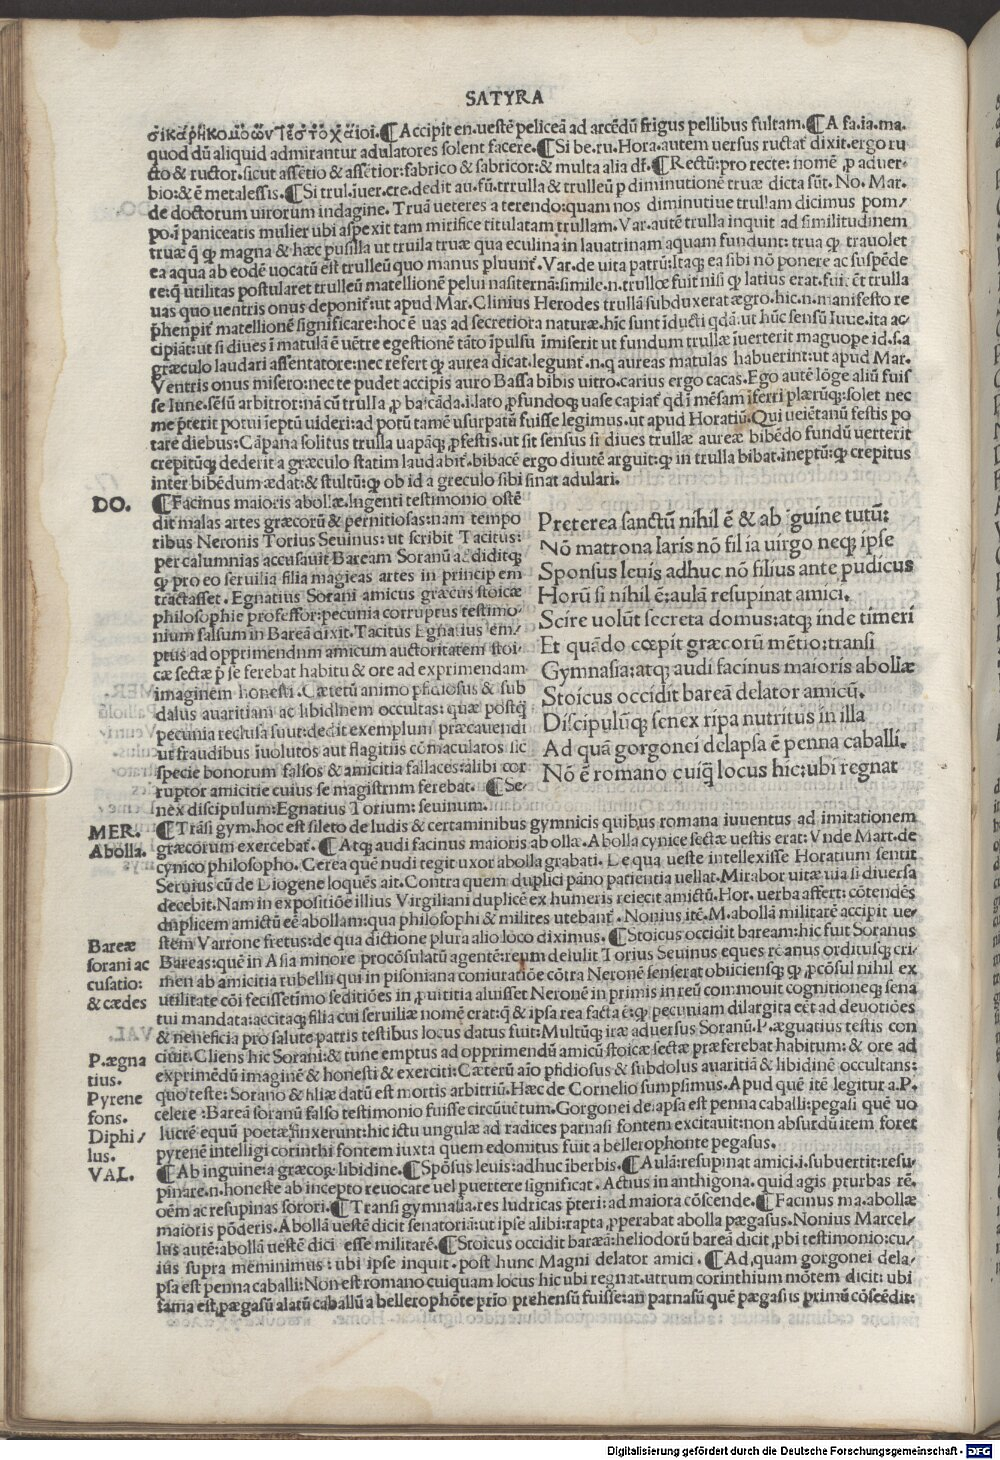 SATYRA
¶Accipit en.uestē peliceā ad arcēdū frigus pellibus fultam.¶A fa.ia.ma.
quod dū aliquid admirantur adulatores solent facere.¶Si be.ru.Hora.autem uersus ructat̄ dixit.ergo ru
cto & ructor.sicut assētio & assētior:fabrico & fabricor:& multa alia dr̄.¶Rectū:pro recte:nomē ꝓ aduer-
bio:& ē metalessis.¶Si trul.īuer.cre.dedit au.fū.trrulla & trulleū p diminutionē truæ dicta sūt.No.Mar.
de doctorum uirorum indagine.Truā ueteres a terendo:quam nos diminutiue trullam dicimus pom/
po.ī paniceatis mulier ubi aspexit tam mirifice titulatam trullam.Var.autē trulla inquit ad similitudinem
truæ q̄ ꝙ magna & hæc pusilla ut truila truæ qua eculina in lauatrinam aquam fundunt:trua ꝙ trauolet
ea aqua ab eodē uocatū est trulleū quo manus pluunt̄.Var.de uita patrū:Itaq; ea sibi nō ponere ac suspēde
re:q̄ utilitas postularet trulleū matellionē pelui nasiternā:simile.n.trulloœ fuit nisi ꝙ latius erat.fui.c̄t trulla
uas quo uentris onus deponit̄:ut apud Mar.Clinius Herodes trullā subduxerat ægro.hic.n.manifesto re
p̄henpit̄ matellionē significare:hoc ē uas ad secretiora naturæ.hīc sunt īducti qdā.ut hūc sensū Iuue.ita ac/
cipiāt:ut si diues ī matulā ē uētre egestionē tāto īpulsu īmiserit ut fundum trullæ īuerterit maguope id.s.a
græculo laudari assentatore:nec refert ꝙ aurea dicat.legunt̄.n.q aureas matulas habuerint:ut apud Mar.
Ventris onus misero:nec te pudet accipis auro Bassa bibis uitro.carius ergo cacas.Ego autē lōge aliū fuis
se Iune.sēsū arbitror:nā cū trulla ꝓ ba:cāda.i.lato ꝓfundoq; uase capiat̄ qd ī mēsam īferri plærūq; solet nec
me p̄terit potui īeptū uideri:ad potū tamē usurpatū fuisse legimus.ut apud Horatiū.Qui ueiētanū festis po
tare diebus:Cāpana solitus trulla uapāq; ꝓfestis.ut sit sensus si diues trullæ aureæ bibēdo fundū uerterit
crepitūq; dederit a græculo statim laudabit̄.bibacē ergo diuitē arguit:ꝙ in trulla bibat.ineptū:ꝙ crepitus
inter bibēdum ædat:& stultū:ꝙ ob id a greculo sibi sinat adulari.
DO.
¶Facinus maioris abollæ.Ingenti testimonio ostē
dit malas artes græcorū & pernitiosas:nam tempo
ribus Neronis Torius Seuinus:ut scribit Tacitus:
per calumnias accusauit Baream Soranū ac diditq;
ꝙ pro eo seruilia filia magicas artes in princip em
tractasset.Egnatius Sorani amicus græcus stoicæ
philosophie professor:pecunia corruptus testimo-
nium falsum in Bareā dixit.Tacitus Egnatius em/
ptus ad opprimendnm amicum auctoritatem stoi-
cæ sectæ p̄ se ferebat habitu & ore ad exprimendam
imaginem honesti.Cætetū animo pfidiosus & sub
dalus auaritiam ac libidinem occultas:quæ postq̄
pecunia reclusa suut:dedit exemplum præcauendi
ut fraudibus īuolutos aut flagitiis cōmaculatos sic
specie bonorum falsos & amicitia fallaces:alibi cor
ruptor amicitie cuius se magistrnm ferebat.¶Se/
nex discipulum:Egnatius Torium:seuinum.
Preterea sanctū nihil ē & ab iguine tutū:
Nō matrona laris nō fil ia uirgo neq; ipse
Sponsus leuis adhuc nō filius ante pudicus
Horū si nihil ē:aulā resupinat amici.
Scire uolūt secreta domus:atq; inde timeri
Et quādo cœpit græcorū mētio:transi
Gymnasia:atq; audi facinus maioris abollæ
Stoicus occidit bareā delator amicū.
Discipulūq; senex ripa nutritus in illa
Ad quā gorgonei delapsa ē penna caballi.
Nō ē romano cuiq̄ locus hic:ubi regnat
MER.
Abolla.
¶Trāsi gym.hoc est sileto de ludis & certaminibus gymnicis quibus romana iuuentus ad imitationem
græcorum exercebat̄.¶Atq; audi facinus maioris ab ollæ.Abolla cynice sectæ uestis erat:Vnde Mart.de
cynico philosopho.Cerea quē nudi tegit uxor abolla grabati.De qua ueste intellexisse Horatium sentit
Seruius cū de Diogene loquēs ait.Contra quem duplici pāno patientia uellat.Mirabor uitæ uia si diuersa
decebit.Nam in expositiōe illius Virgiliani duplicē ex humeris reiecit amictū.Hor.uerba affert:cōtendēs
duplicem amictū eē abollam:qua philosophi & milites utebant̄.Nonius itē.M.abollā militarē accipit ue/
stem Varrone fretus:de qua dictione plura alio loco diximus.¶Stoicus occidit baream:hic fuit Soranus
Bareæ
sorani ac
cusatio:
& cædes
Bareas:quē in Asia minore procōsulatū agentē:reum detulit Torius Seuinus eques roanus orditusq; cri-
men ab amicitia rubellii qui in pisoniana coniuratiōe cōtra Neronē senserat obiiciensq; ꝙ ꝓcōsul nihil ex
utilitate cōi fecisset:īmo seditiōes in ꝓuititia aluisset Neronē in primis in reū commouit cognitioneq; sena
tui mandata:accitaq; filia cui seruiliæ nomē erat:q̄ & ipsa rea facta ē:ꝙ pecuniam dilargita eēt ad deuotiōes
& neneficia pro salute patris testibus locus datus fuit:Multūq; iræ aduersus Soranū.P.æguatius testis con
P.ægna
tius.
ciuit.Cliens hic Sorani:& tunc emptus ad opprimendū amicū stoicæ sectæ præferebat habitum:& ore ad
exprimēdū imaginē & honesti & exerciti:Cæterū aīo pfidiosus & subdolus auaritiā & libidinē occultans:
Pyrene
fons.
quo teste:Sorano & filiæ datū est mortis arbitriū.Hæc de Cornelio sumpsimus.Apud quē itē legitur a.P.
celere:Bareā soranū falso testimonio fuisse circūuētum.Gorgonei delapsa est penna caballi:pegasi quē uo
Diphi/
lus.
lucrē equū poetæ finxerunt:hic ictu ungulæ ad radices parnasi fontem excitauit:non absurdū item foret
pyrenē intelligi corinthi fontem iuxta quem edomitus fuit a bellerophonte pegasus.
VAL.
¶Ab inguine:ia græcoꝝ libidine.¶Spōsus leuis:adhuc īberbis.¶Aulā:resupinat amici.i.subuertit:resu/
pinare.n.honeste ab incepto reuocare uel puertere significat.Actius in anthigona.quid agis pturbas rē.
oēm ac resupinas sorori.¶Transi gymnasia.res ludricas p̄teri:ad maiora cōscende.¶Facinus ma.abollæ
maioris pōderis.Abollā uestē dicit senatoriā:ut ipse alibi:rapta ꝓperabat abolla pægasus.Nonius Marcel/
lus autē:abollā uestē dici esse militarē.¶Stoicus occidit baræā:heliodorū bareā dicit ꝓbi testimonio:cu/
iūs supra meminimus:ubi ipse inquit.post hunc Magni delator amici.¶Ad quam gorgonei dela/
psa est penna caballi:Non est romano cuiquam locus hic ubi regnat.utrum corinthium mōtem dicit:ubi
fama est pægasū alatū caballū a bellerophōte prīo prehensū fuisse:an parnasū quē pægasus primū cōscēdit:
Digitalisierung gefördert durch die Deutsche Forschungsgemeinschaft - DFG